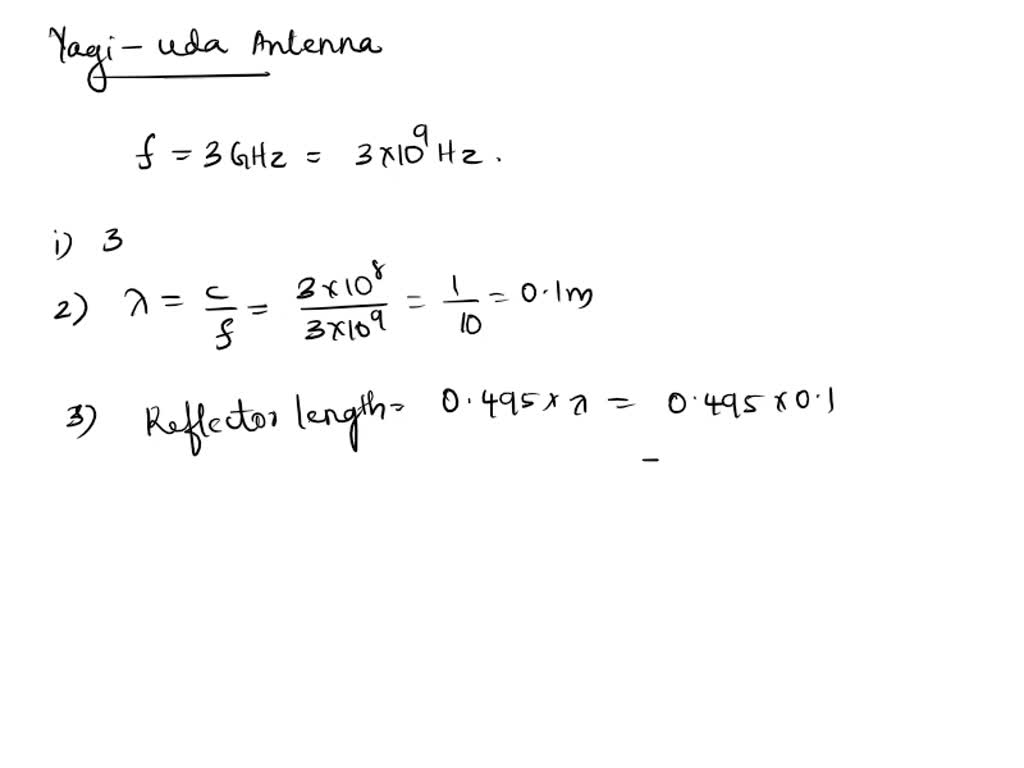 Yagi-uda Antenna
f = 3 GHz = 3×10⁹ Hz.
i) 3
2) λ = c/f = 3×10⁸/3×10⁹ = 1/10 = 0.1m
3) Reflector length = 0.495×λ = 0.495×0.1
=